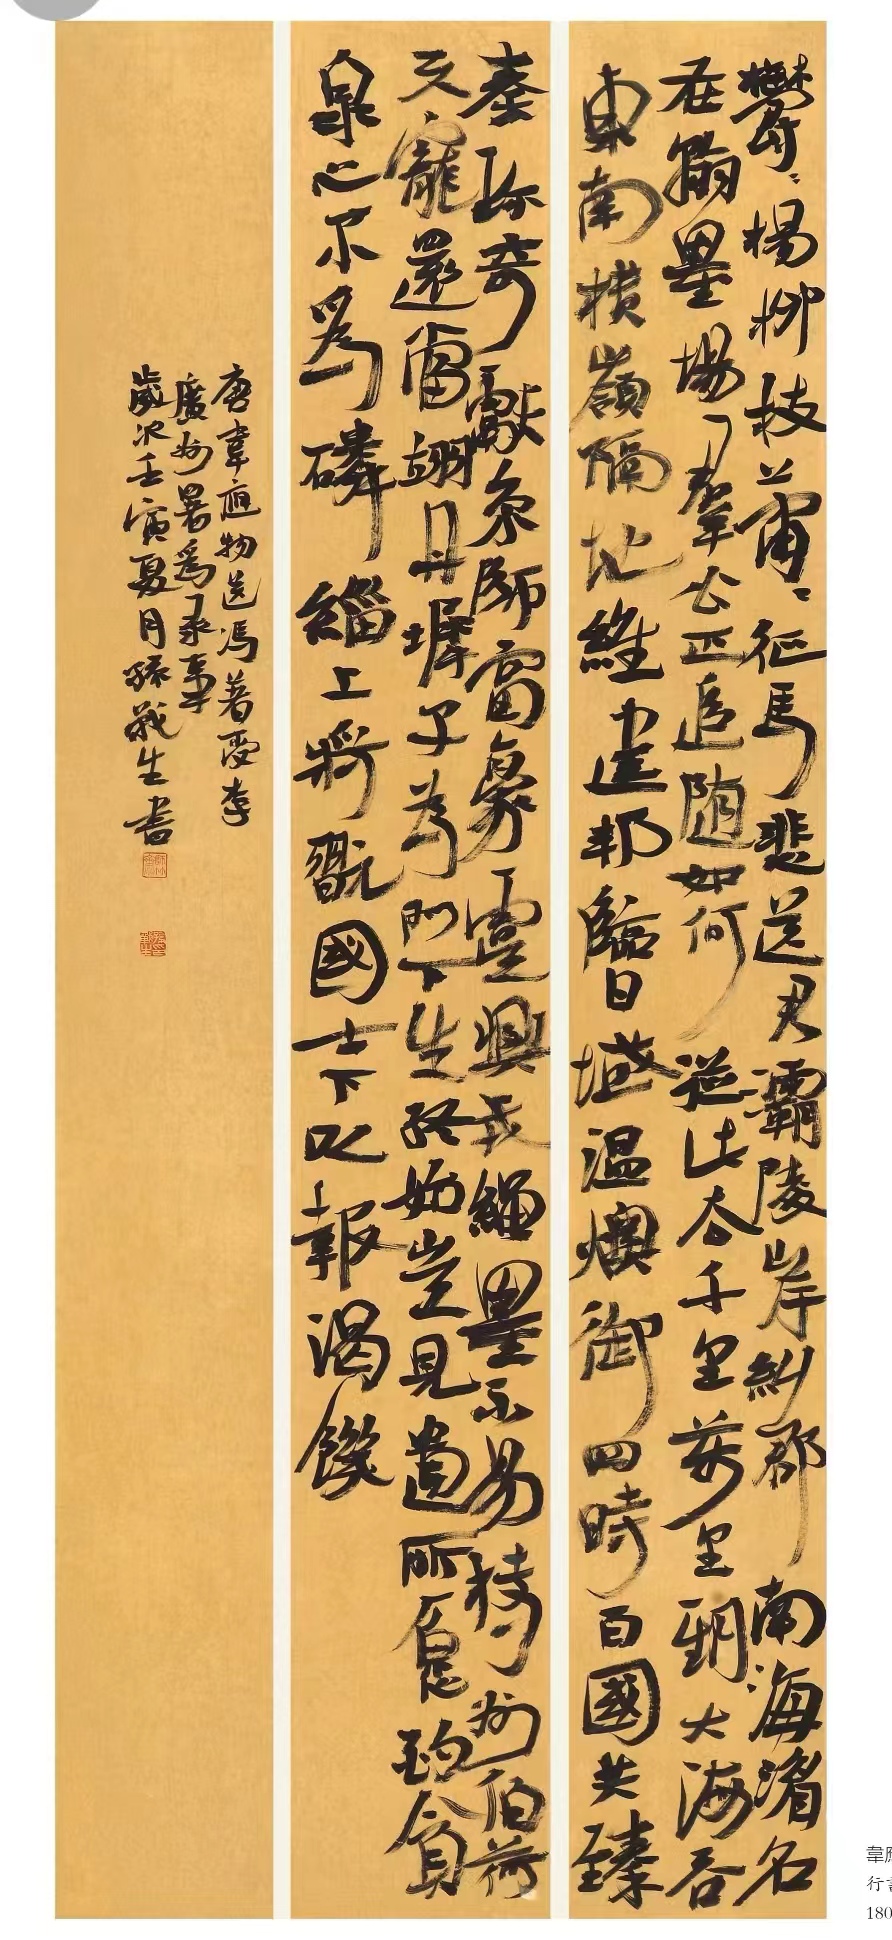 鬱〻楊柳枝蕭〻征馬悲送君灞陵岸糾郡南海湄名
在翰墨場羣公正追随如何從此去千里萬里期大海吞
東南横嶺隔地維建邦臨日域温燠御四時百國共臻
奏珍奇獻京師富豪虞興戎繩墨不易持州伯荷
天寵還當翊丹墀子為門下生終始豈見遺所愿酌貪
泉心不爲磷緇上將翫國士下以報渴饑
唐韋應物送馮著受李
廣州署爲录事
歲次壬寅夏月生書
韋
行
180